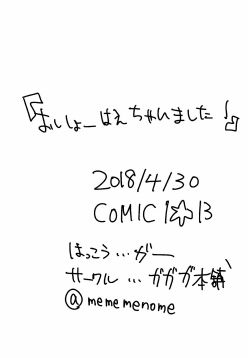 『おいしょーはえちゃいました』
2018/4/30
COMIC1☆13
はっこう…がー
サークル…ガガガ本舗
@mememenome